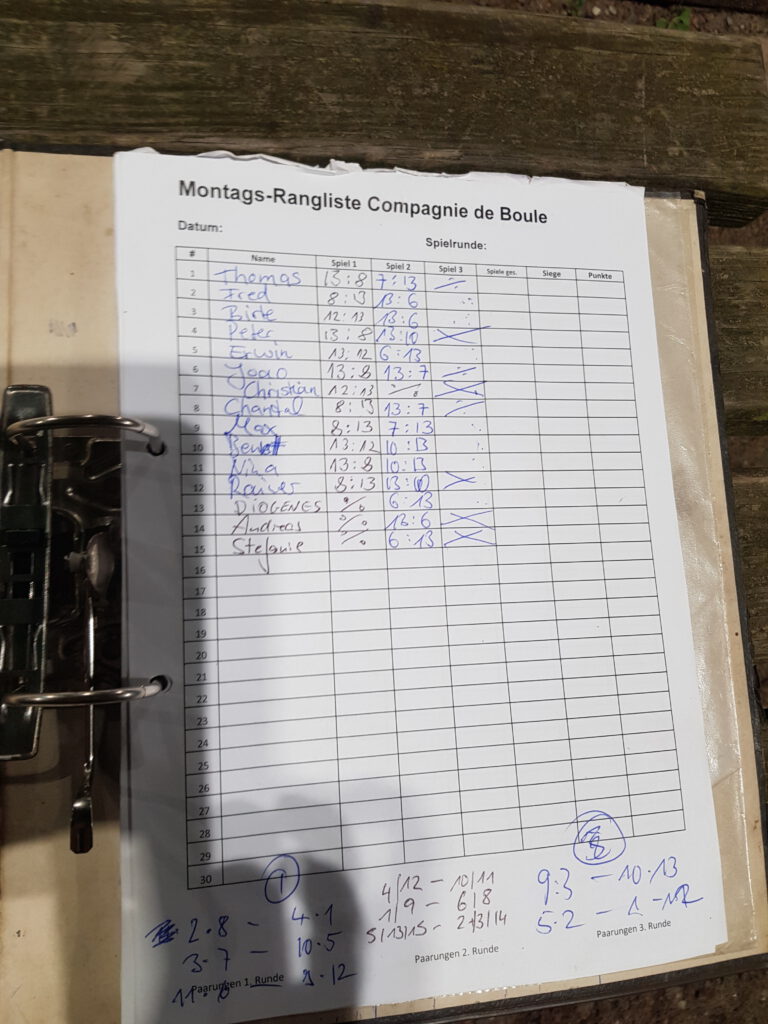 Montags-Rangliste Compagnie de Boule
Datum:
Spielrunde:
# Name Spiel 1 Spiel 2 Spiel 3 Spiele ges. Siege Punkte
1 Thomas 13:8 7:13
2 Fred 8:13 13:6
3 Birte 12:13 13:6
4 Peter 13:8 13:10
5 Erwin 13:12 6:13
6 Joao 13:8 13:7
7 Christian 12:13
8 Chantal 8:13 13:7
9 Max 8:13 7:13
10 13:12 10:13
11 Nina 13:8 10:13
12 Rainer 8:13 13:10
13 DIOGENES % 6:13
14 Andreas % 13:6
15 Stefanie % 6:13
16
17
18
19
20
21
22
23
24
25
26
27
28
29
30
1
2.8 - 4.1
3.7 - 10.5
4/12 - 10/11
1/9 - 6/8
5/13/15 - 2/3/14
9:3 - 10.13
5.2 -
Paarungen 1. Runde
Paarungen 2. Runde
Paarungen 3. Runde